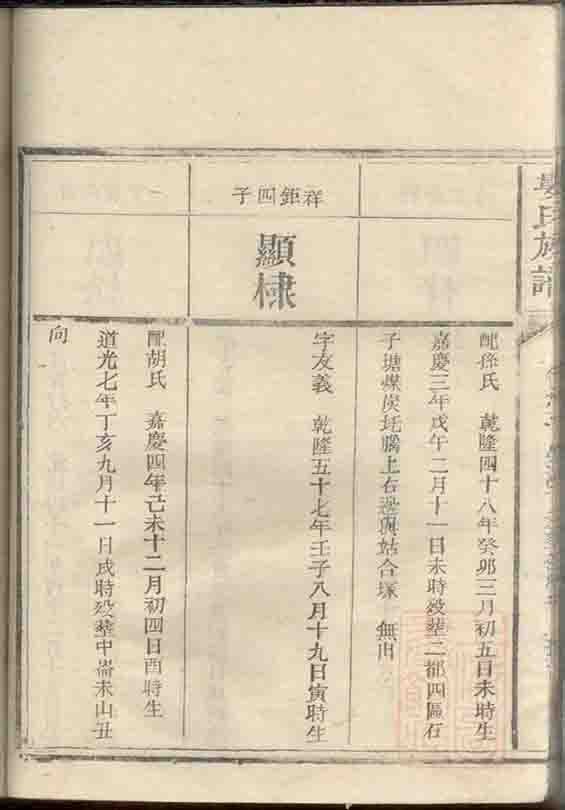 氏族譜
配孫氏　乾隆四十八年癸卯三月初五日未時生
嘉慶三年戊午二月十一日未時歿塟二都四區石
子塘煤炭坵腦上右邊與姑合塚　無出
祥鉅四子
顯棣
字友義　乾隆五十七年壬子八月十九日寅時生
配胡氏　嘉慶四年己未十二月初四日酉時生
道光七年丁亥九月十一日戌時歿塟中崙未山丑
向